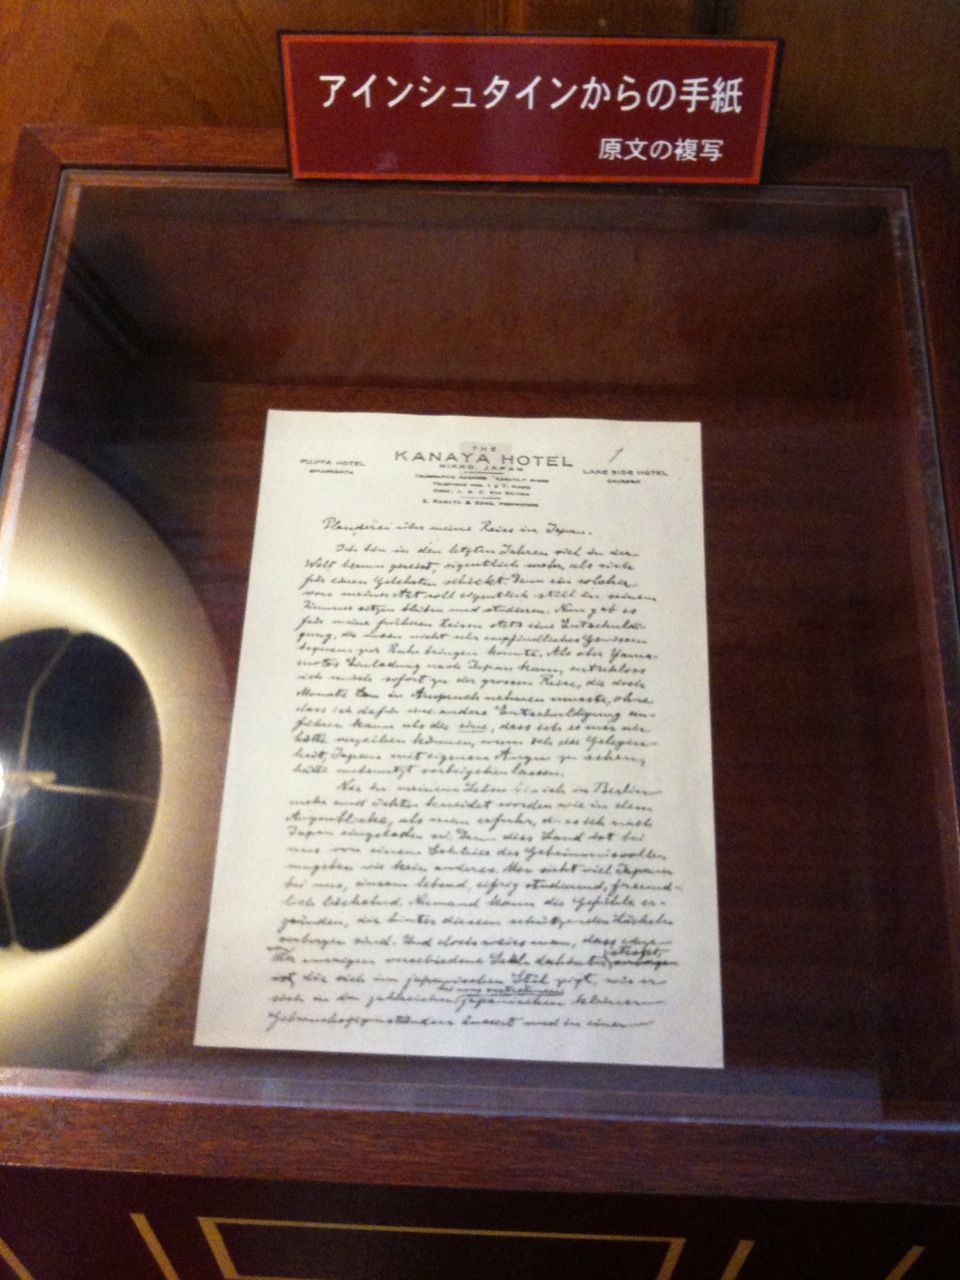 アインシュタインからの手紙
原文の複写
THE
KANAYA HOTEL
NIKKO, JAPAN
FUJIYA HOTEL
MIYANOSHITA
LAKE SIDE HOTEL
CHUZENJI
TELEGRAPHIC ADDRESS: "KANAYA," NIKKO
TELEPHONE NOS. 1 & 7, NIKKO
CODE: A. B. C. 5TH EDITION
Z. KANAYA & SONS, PROPRIETORS
1
Plauderei über meine Reise in Japan.
Ich bin in den letzten Jahren viel in der
Welt herum gereist, eigentlich mehr, als sich
für einen Gelehrten schickt. Denn ein solcher
von meiner Art soll eigentlich still in seinem
Zimmer sitzen bleiben und studieren. Nun gab es
für meine früheren Reisen stets eine Entschuldi-
gung, die mein nicht sehr empfindliches Gewissen
bequem zur Ruhe bringen konnte. Als aber Yama-
motos Einladung nach Japan kam, entschloss
ich mich sofort zu der grossen Reise, die doch
Monate in Anspruch nehmen musste, ohne
dass ich dafür eine andere Entschuldigung an-
führen kann als die eine, dass ich es mir nie
hätte verzeihen können, wenn ich die Gelegen-
heit, Japan mit eigenen Augen zu sehen,
hätte unbenutzt vorbeigehen lassen.
Nie in meinem Leben bin ich in Berlin
mehr und ächter beneidet worden wie in dem
Augenblicke, als man erfuhr, dass ich nach
Japan eingeladen sei. Denn dies Land ist bei
uns von einem Schleier des Geheimnisvollen
umgeben wie kein anderes. Man sieht viel Japaner
bei uns, einsam lebend, eifrig studierend, freund-
lich lächelnd. Niemand kann die Gefühle er-
gründen, die hinter diesem schützenden Lächeln
verborgen sind. Und doch weiss man, dass
verschiedene Seele dahinter
die sich im japanischen Stil zeigt, wie er
sich in den zahlreichen japanischen kleinen
Gebrauchsgegenständen äussert und in einer